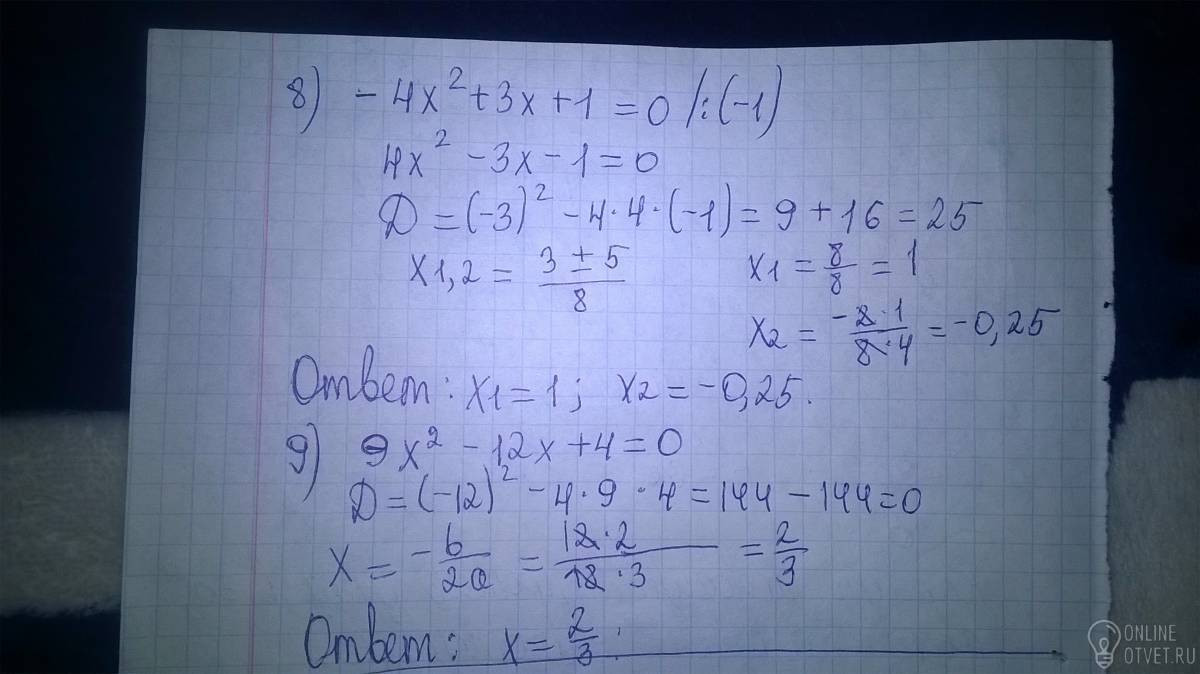 8) -4x² + 3x + 1 = 0 /:(-1)
4x² - 3x - 1 = 0
D = (-3)² - 4·4·(-1) = 9 + 16 = 25
x1,2 = (3 ± 5)/8    x1 = 8/8 = 1
x2 = -(2·1)/(8·4) = -0,25
Ответ: x1 = 1; x2 = -0,25.
9) 9x² - 12x + 4 = 0
D = (-12)² - 4·9·4 = 144 - 144 = 0
x = -b/2a = (12·2)/(18·3) = 2/3
Ответ: x = 2/3.
ONLINE
OTVET.RU